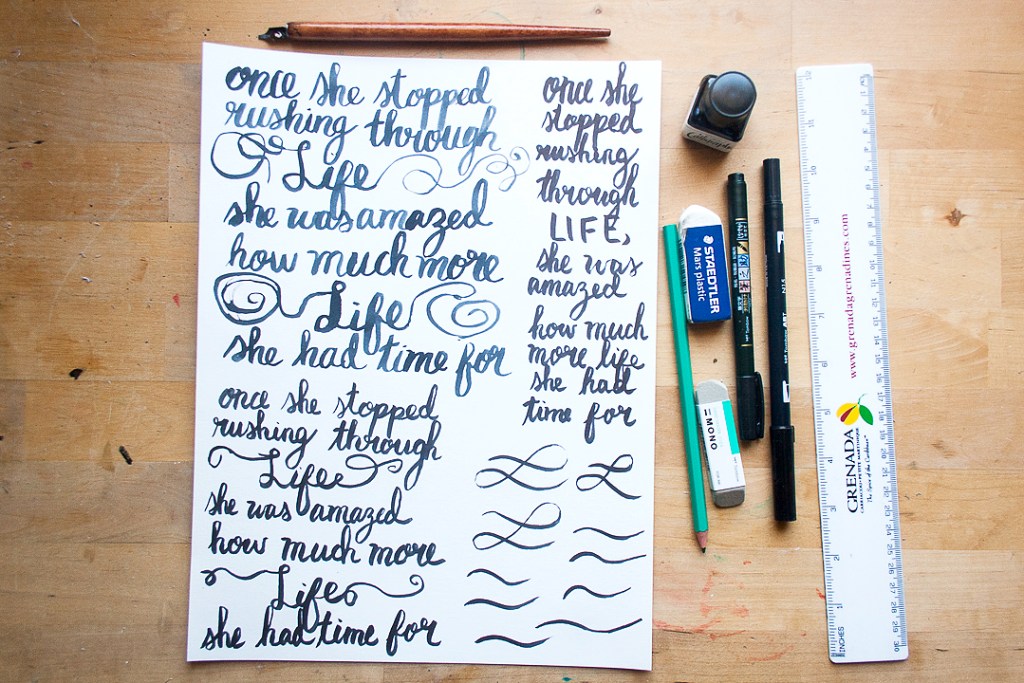 once she stopped
rushing through
Life
she was amazed
how much more
Life
she had time for
once she stopped
rushing through
Life
she was amazed
how much more
Life
she had time for
once she
stopped
rushing
through
LIFE,
she was
amazed
how much
more life
she had
time for
STAEDTLER
Mars plastic
MONO
www.grenadagrenadines.com
GRENADA
CARRIACOU & PETITE MARTINIQUE
The Spice of the Caribbean
INCHES